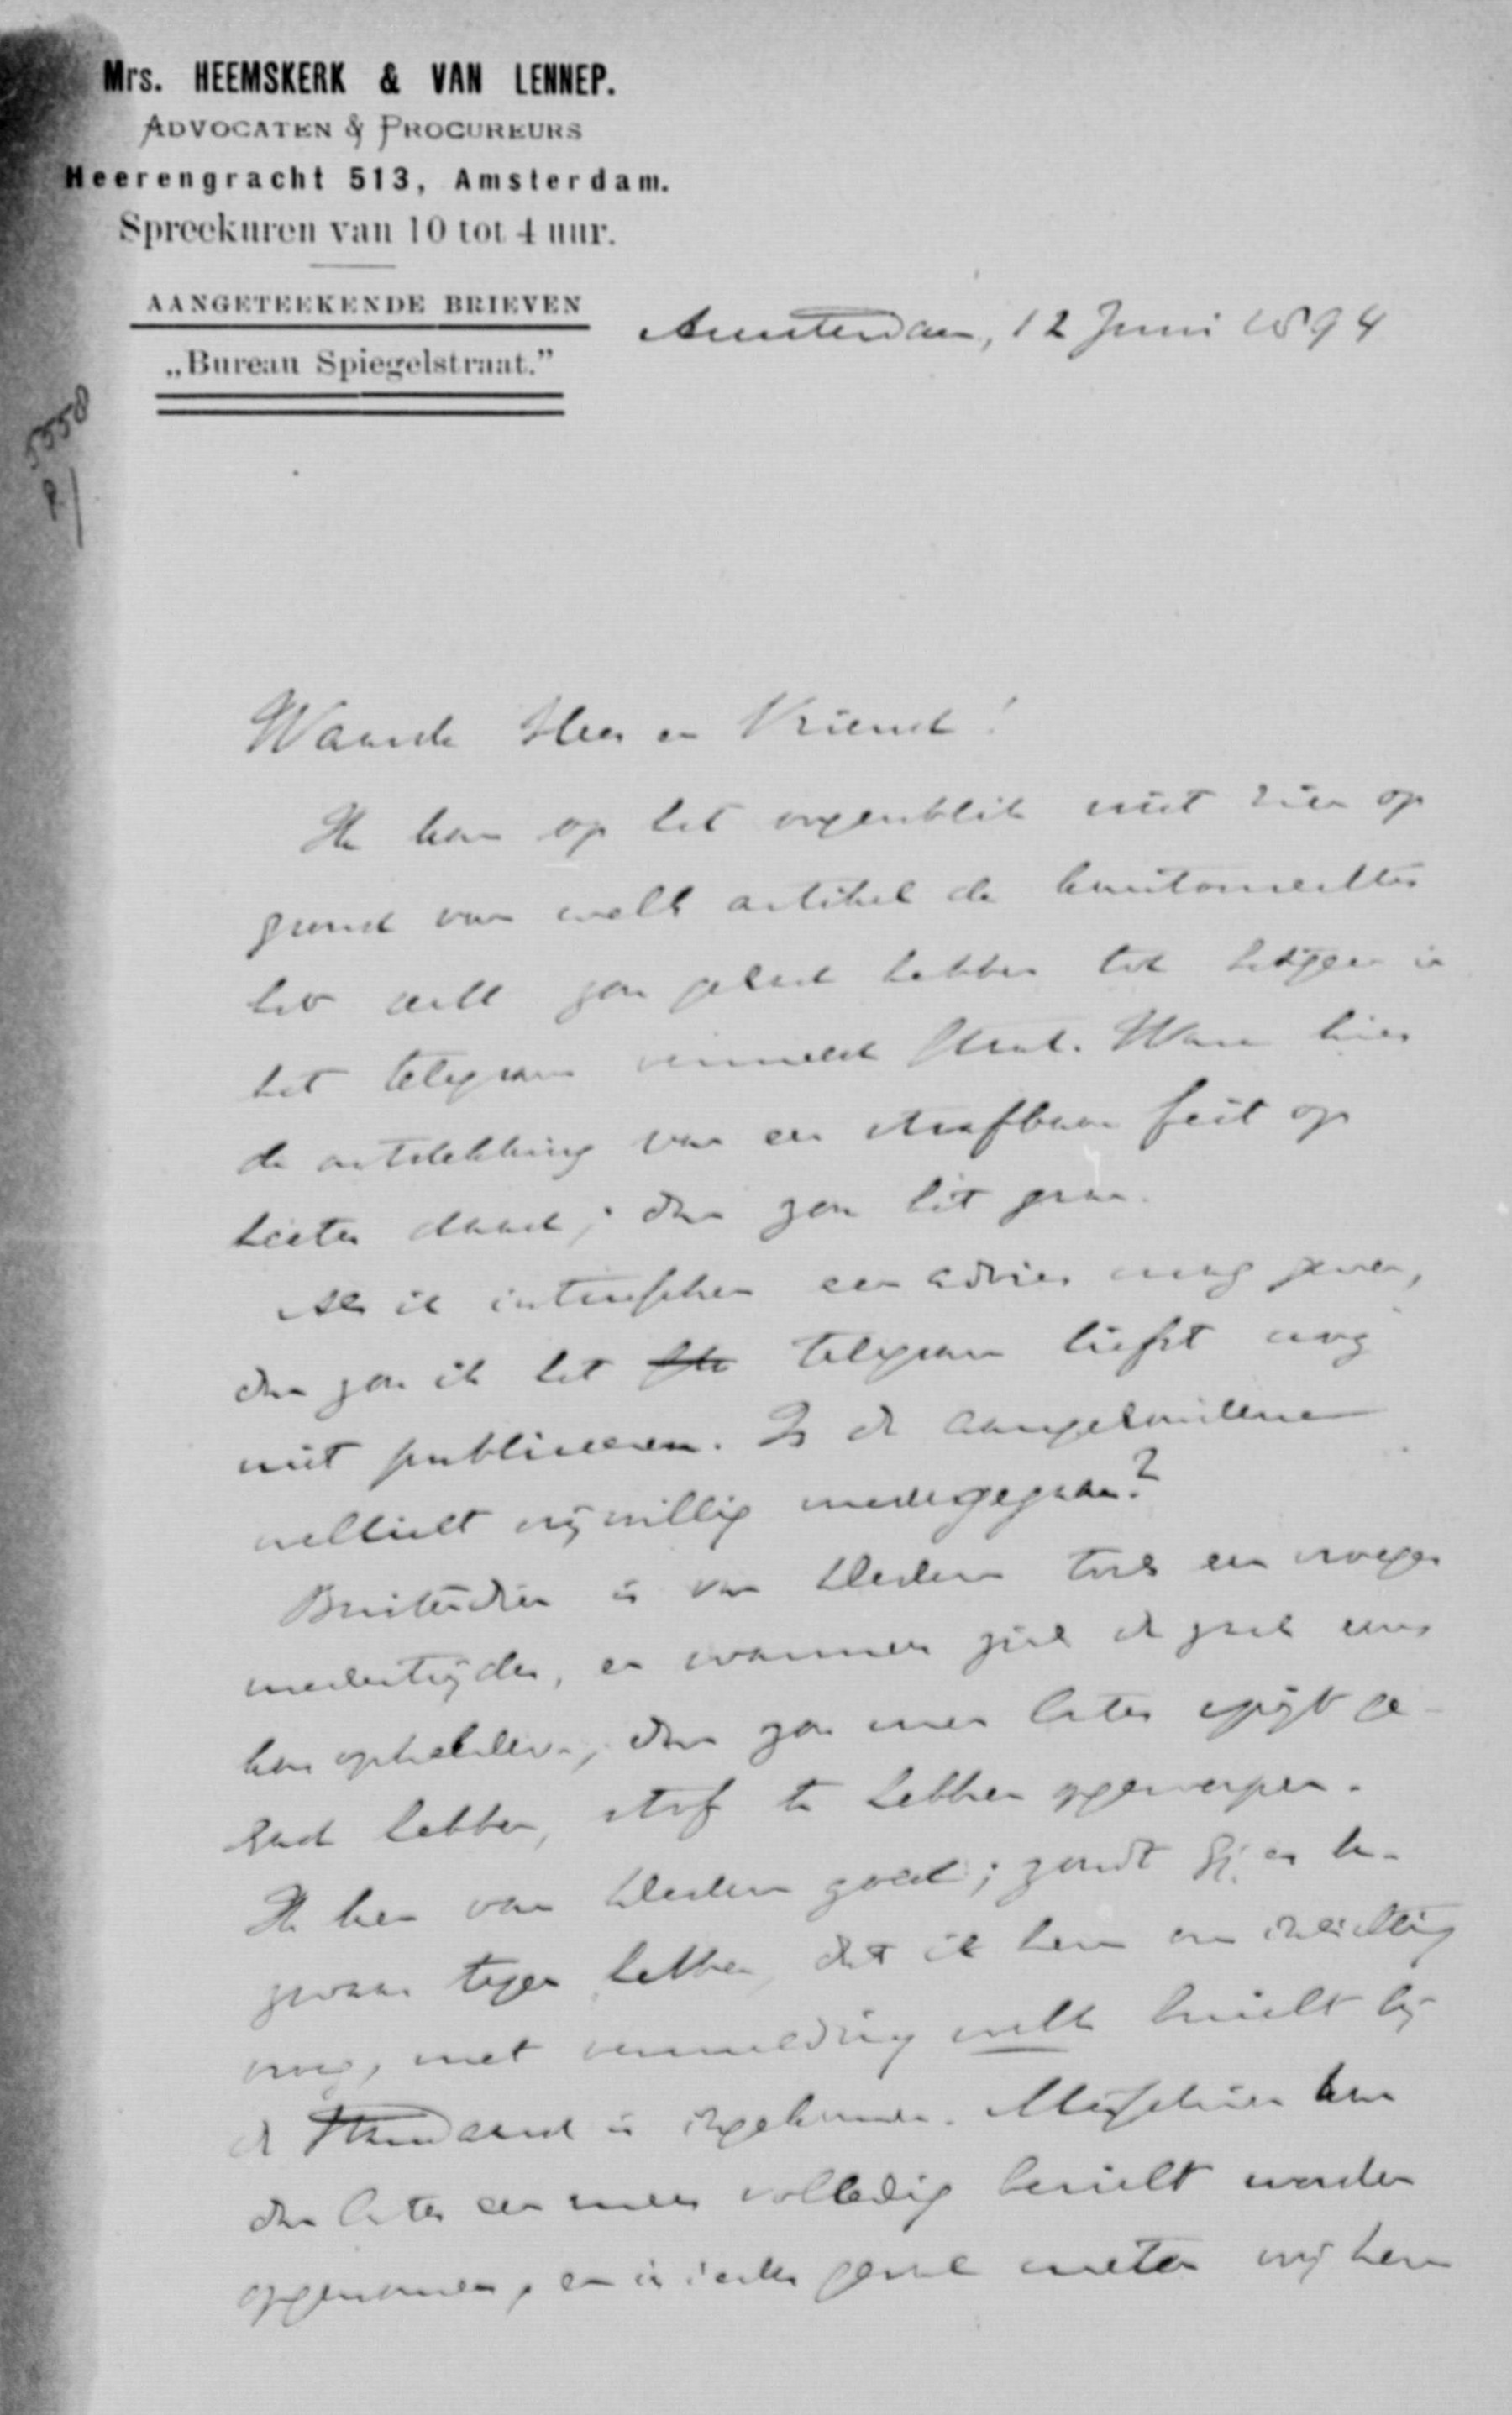 Mrs. HEEMSKERK & VAN LENNEP.
ADVOCATEN & PROCUREURS
Heerengracht 513, Amsterdam.
Spreekuren van 10 tot 4 uur.
AANGETEEKENDE BRIEVEN
„Bureau Spiegelstraat.”
Amsterdam, 12 Juni 1894
5558
Waarde Heer en Vriend!
Ik kan op het oogenblik niet zien op
grond van welk artikel de kantonrechter
het recht zou gehad hebben tot hetgeen in
het telegram vermeld staat. Ware hier
de ontdekking van een strafbaar feit op
heeter daad, dan zou het gaan.
Als ik intusschen een advies mag geven,
dan zou ik het telegram liefst nog
niet publiceeren. Is de aangehoudene
wellicht vrijwillig medegegaan?
Buitendien is van Hederen toch een vroeger
medestrijder, en wanneer zich de zaak eens
kon ophelderen, dan zou men later spijt ge-
had hebben, stof te hebben opgeworpen.
Ik ken van Hederen goed; zoudt gij er be-
zwaar tegen hebben, dat ik hem om inlichting
vroeg, met vermelding welk bericht bij
de Standaard is ingekomen. Misschien kan
dan later een meer volledig bericht worden
opgenomen, en in ieder geval weten wij hem